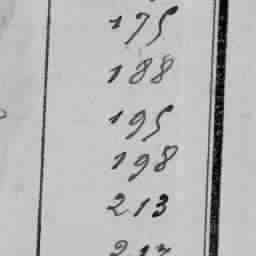 175
188
195
198
213